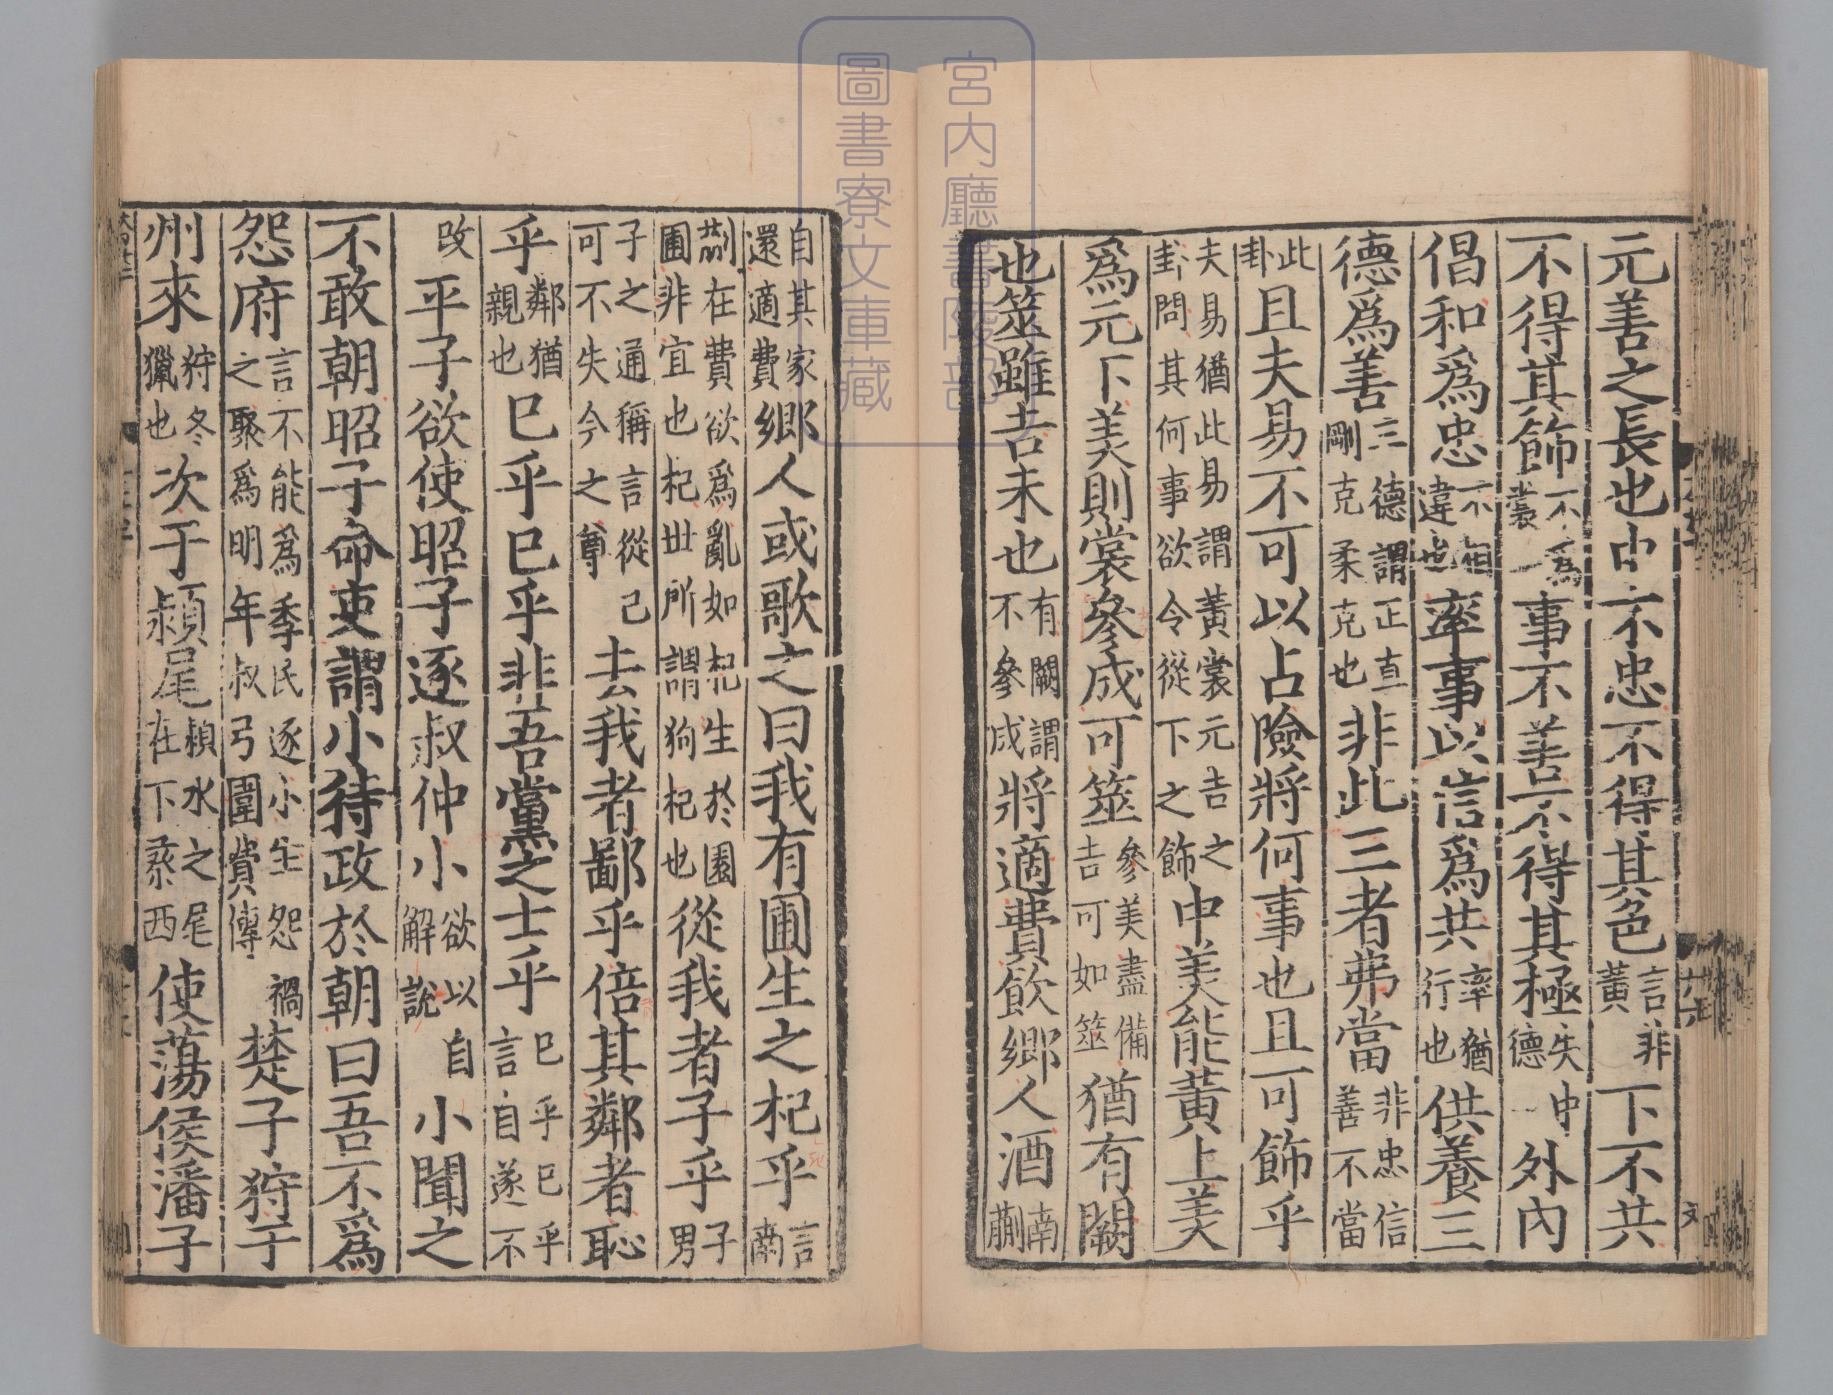 元善之長也中不忠不得其色言非黃下不共
不得其飾不爲裳一事不善不得其極失中德外內
倡和爲忠不相違也率事以信爲共率猶行也供養三
德爲善三德謂正直剛克柔克也非此三者弗當非忠信善不當
此卦且夫易不可以占險將何事也且可飾乎
夫易猶此易謂黃裳元吉之卦問其何事欲令從下之飾中美能黃上美
爲元下美則裳參成可筮參美盡備吉可如筮猶有闕
也筮雖吉未也有闕謂不參成將適費飲鄉人酒南蒯
自其家還適費鄉人或歌之曰我有圃生之杞乎言南
蒯在費欲爲亂如杞生於園圃非宜也杞世所謂狗杞也從我者子乎子男
子之通稱言從己可不失今之尊去我者鄙乎倍其鄰者恥
乎鄰猶親也巳乎巳乎非吾黨之士乎巳乎巳乎言自遂不
改平子欲使昭子逐叔仲小欲以自解說小聞之
不敢朝昭子命吏謂小待政於朝曰吾不爲
怨府言不能爲季氏逐小生怨禍之聚爲明年叔弓圍費傳楚子狩于
州來狩冬獵也次于潁尾潁水之尾在下蔡西使蕩侯潘子
宮內廳書陵部
圖書寮文庫藏